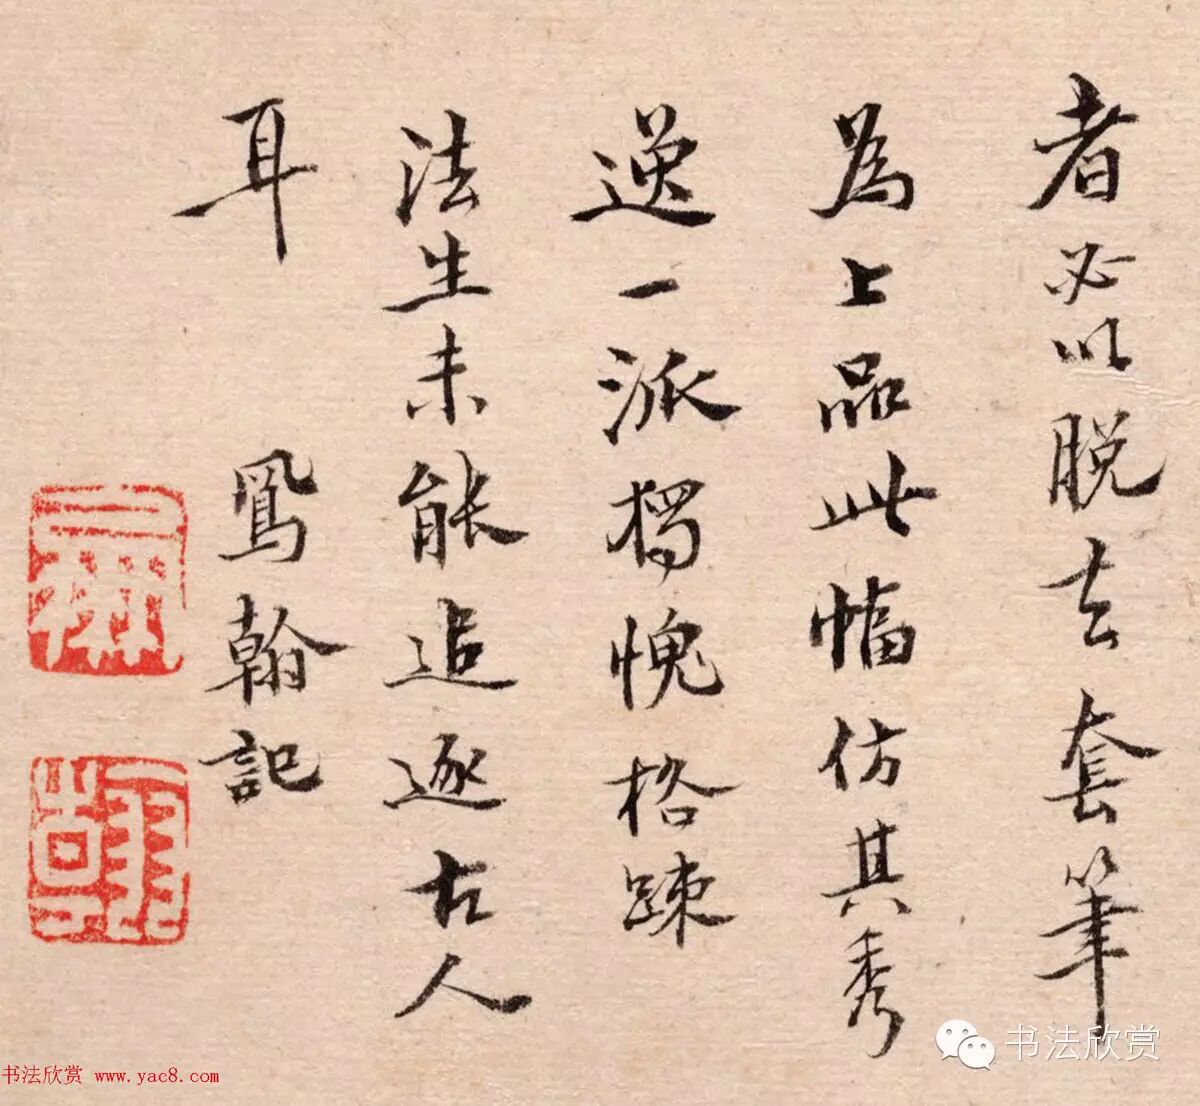 者必以脱去套筆
為上品此幅仿其秀
逸一派獨愧格踈
法生未能追逐古人
耳 鳳翰記
书法欣赏
书法欣赏 www.yac8.com